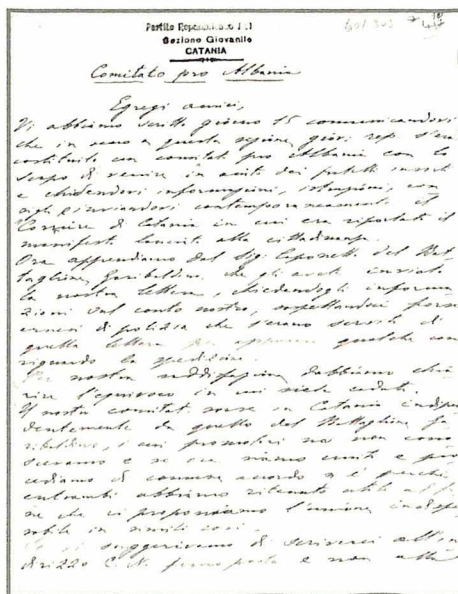 Partito Repubblicano I
Sezione Giovanile
CATANIA
Comitato pro Albania
Egregi amici,
Vi abbiamo scritto giorno 15 comunicandovi
che in seno a questa sezione giov. rep. s'era
costituito un comitato pro Albania con lo
scopo di venire in aiuto dei fratelli insorti
e chiedendovi informazioni, istruzioni, con
sigli e inviandovi contemporaneamente il
Corriere di Catania in cui era riportato il
manifesto lanciato alla cittadinanza.
Ora apprendiamo dal Sig. del Bat
taglione Garibaldino che gli avete inviato
la nostra lettera, chiedendogli informa
zioni sul conto nostro, sospettandoci forse
di polizia che s'erano serviti di
quella lettera per qualche cosa
riguardo la spedizione.
Per nostra soddisfazione dobbiamo chia
rire l'equivoco in cui siete caduti.
Il nostro comitato sorse in Catania indipen
dentemente da quello del Battaglione Ga
ribaldino, i cui promotori noi non cono
scevamo e se ora siamo uniti e pro
cediamo di comune accordo è perchè
entrambi abbiamo ritenuto utile al fi
ne che ci proponiamo l'unione indispen
sabile in simili casi.
suggerivamo di scriverci all'in
dirizzo C.N. fermo posta e non alla